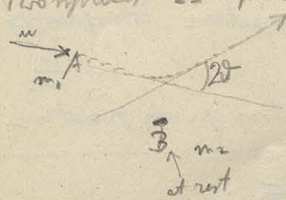 u
A
m₁
2ϑ
B m₂
at rest